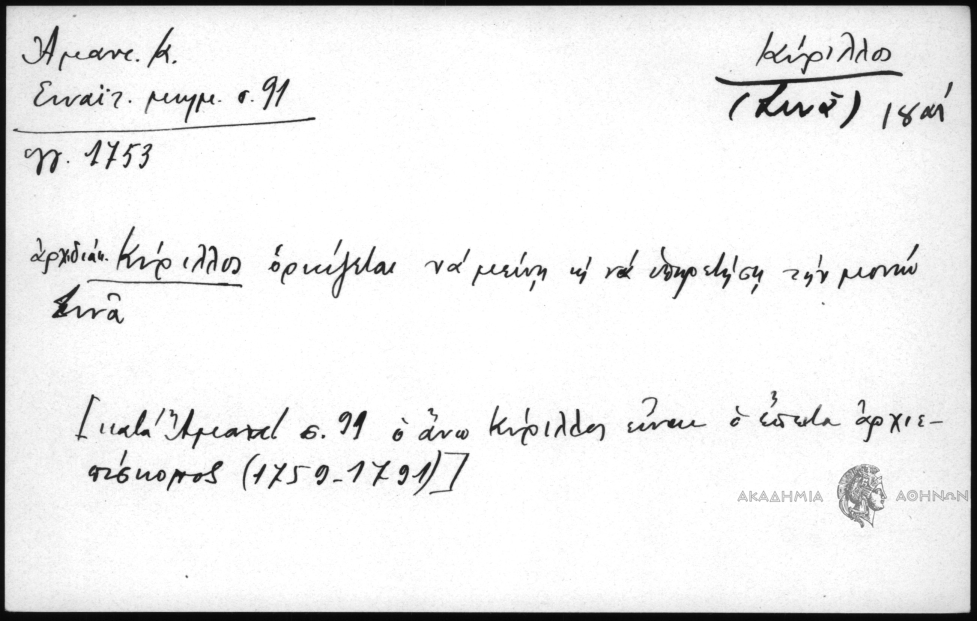 Ἀμαντ. Κ.
Σιναϊτ. μνημ. σ. 91
γγ. 1753
Κύριλλος
(Σινᾶ) 18 αἰ
ἀρχιδιάκ. Κύριλλος ὁρκίζεται νά μείνῃ κ νά ὑπηρετήσῃ τήν μονήν
Σινᾶ
[κατά Ἄμαντ σ. 91 ὁ ἄνω Κύριλλος εἶναι ὁ ἔπειτα ἀρχιε-
πίσκοπος (1759-1791)]
ΑΚΑΔΗΜΙΑ ΑΘΗΝΩΝ